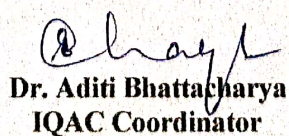 Dr. Aditi Bhattacharya
IQAC Coordinator